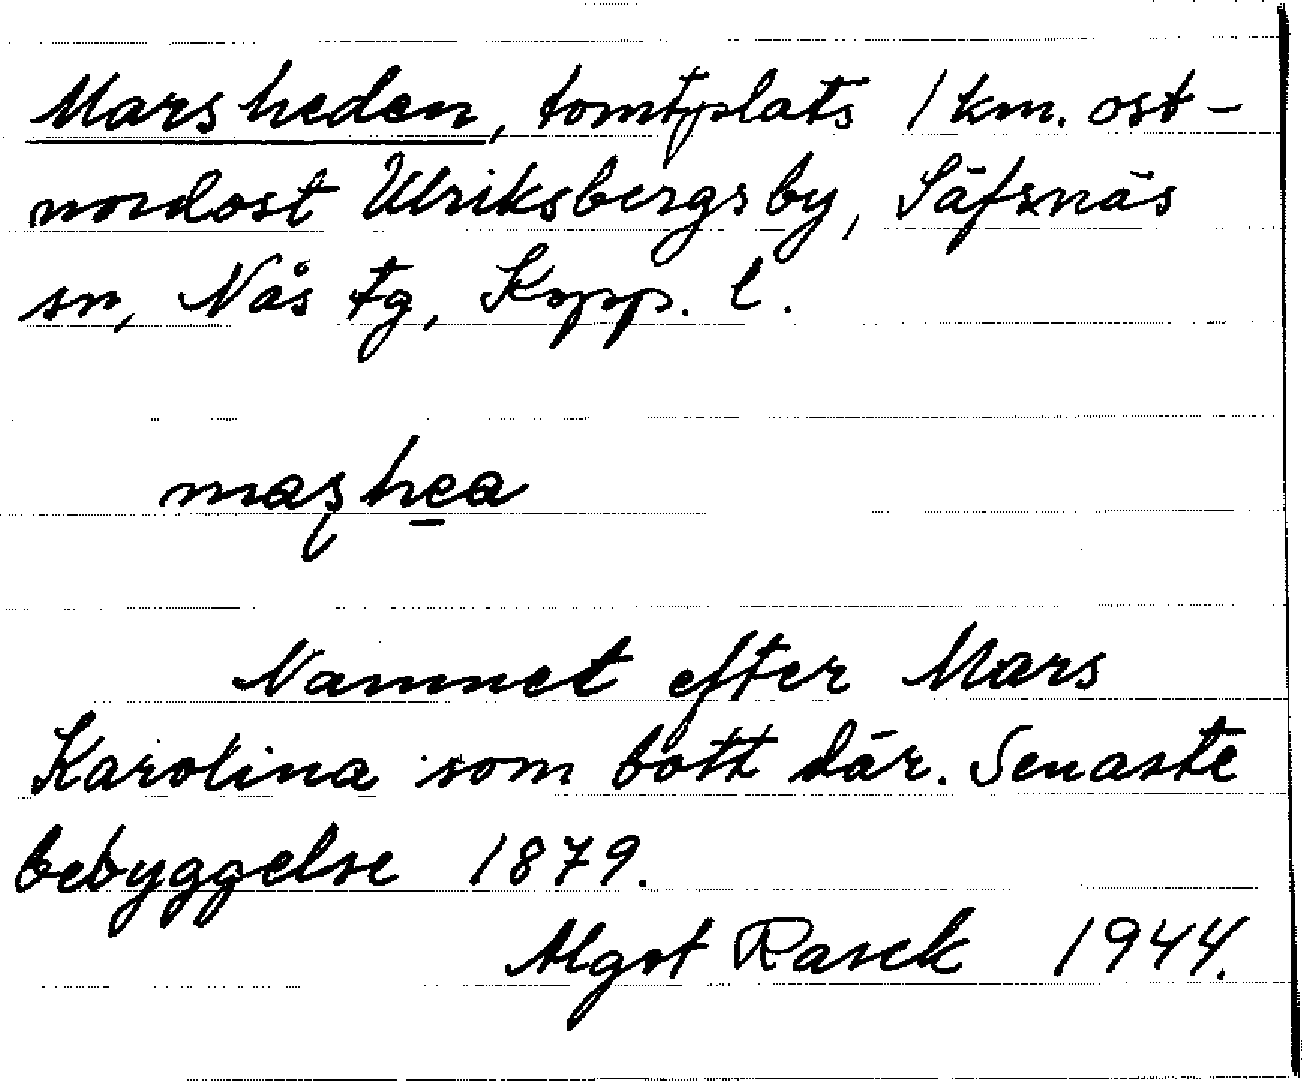 Marsheden, tomtplats 1 km. ost-
nordost Ulriksbergsby, Säfsnäs
sn, Nås tg, Kopp. l.
maʂhe̱a
Namnet efter Mars
Karolina som bott där. Senaste
bebyggelse 1879.
Algot Rasck 1944.